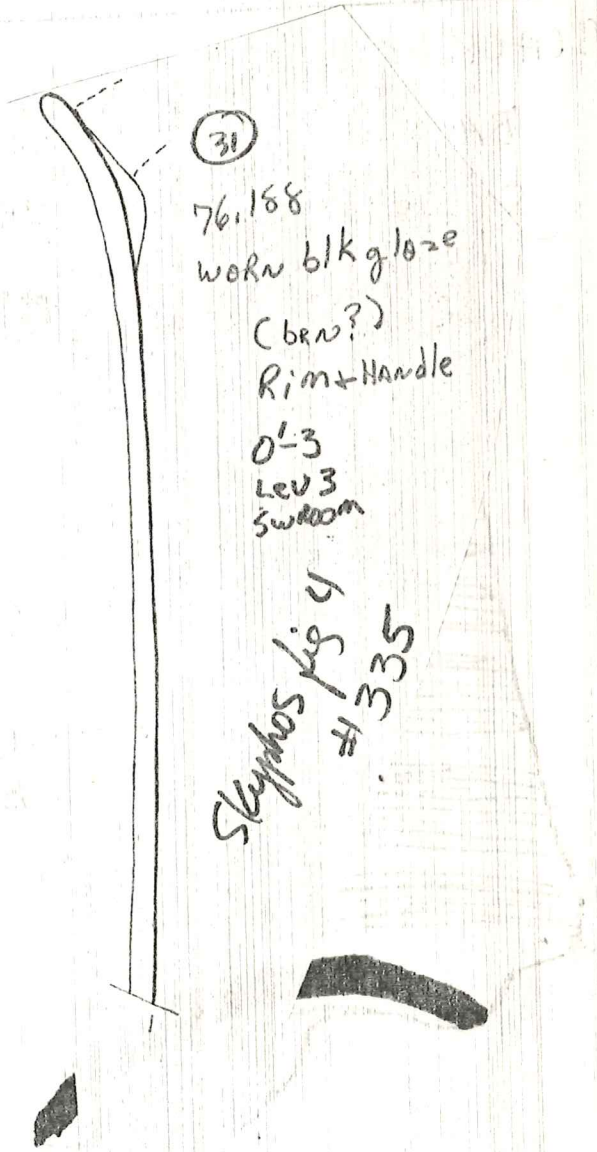 31
76.188
WORN blk glaze
(brn?)
Rim + Handle
O'-3
Lev 3
SW ROOM
Skyphos fig 4
#335